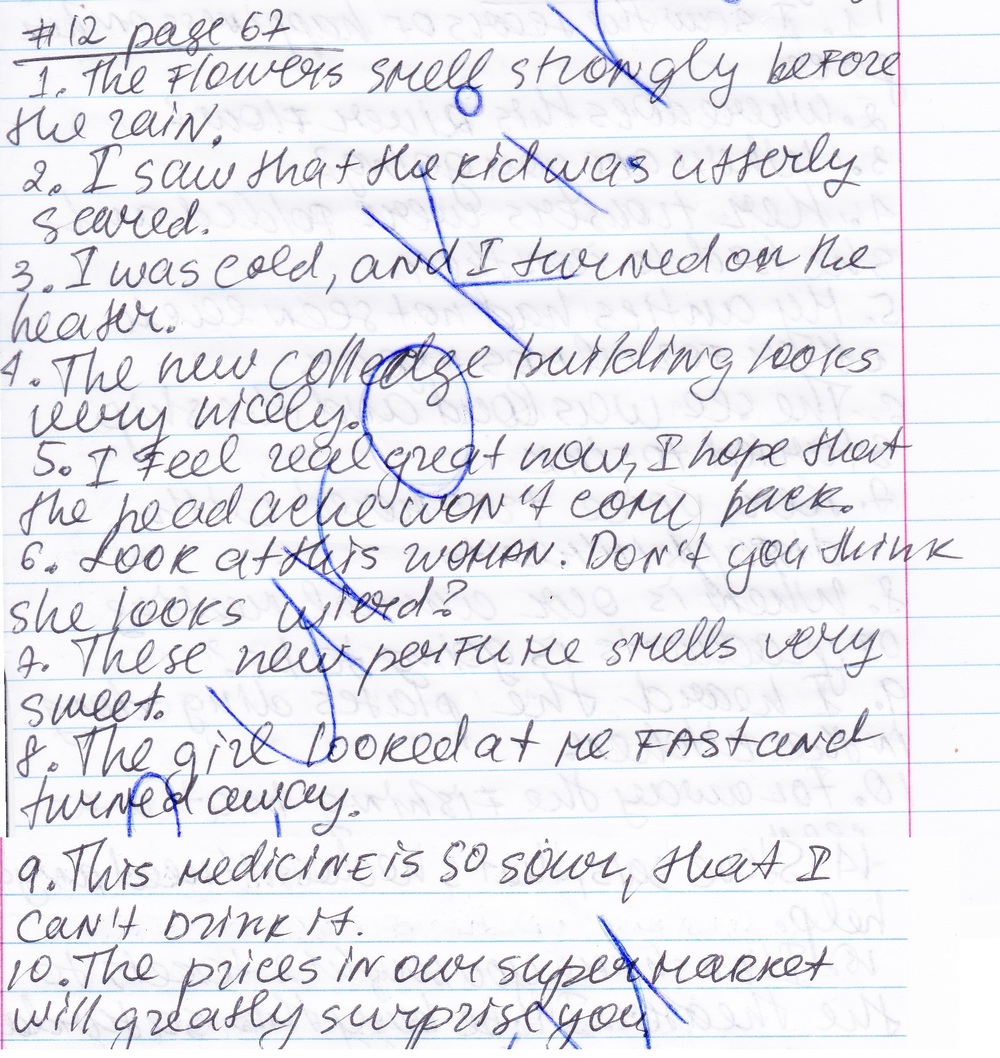 #12 page 67
1. The Flowers smell strongly before
the rain.
2. I saw that the kid was utterly
scared.
3. I was cold, and I turned on the
heater.
4. The new colledge building looks
very nicely.
5. I Feel real great now, I hope that
the headache won't come back.
6. Look at this woman. Don't you think
she looks wierd?
7. These new perfume smells very
sweet.
8. The girl looked at me FAST and
turned away.
9. This medicine is so sour, that I
can't Drink it.
10. The prices in our supermarket
will greatly surprise you